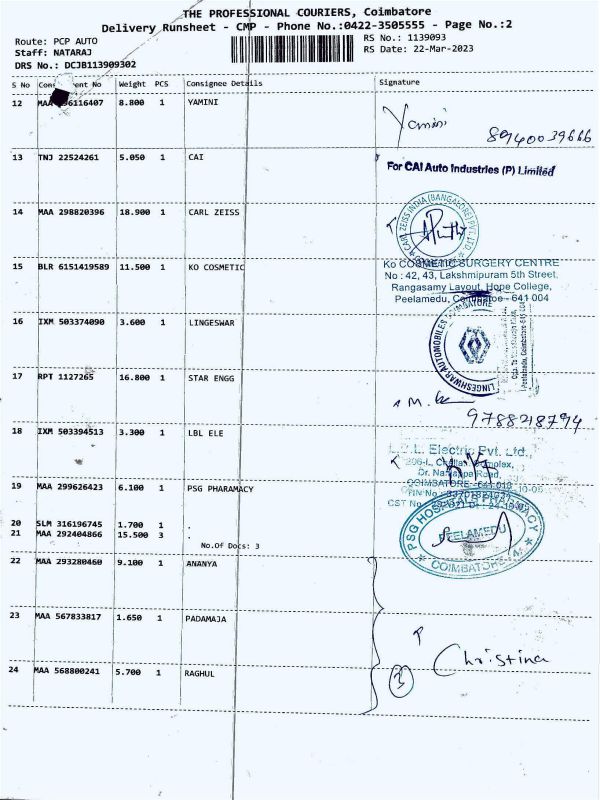 THE PROFESSIONAL COURIERS, Coimbatore
Delivery Runsheet - CMP - Phone No.:0422-3505555 - Page No.:2
Route: PCP AUTO
Staff: NATARAJ
DRS No.: DCJB113909302
RS No.: 1139093
RS Date: 22-Mar-2023
S No Weight PCS Consignee Details Signature
12 MAA 8.800 1 YAMINI
Yamini
8940039666
13 TNJ 22524261 5.050 1 CAI
For CAI Auto Industries (P) Limited
14 MAA 298820396 18.900 1 CARL ZEISS
CARL ZEISS INDIA (BANGALORE) PVT. LTD.
15 BLR 6151419589 11.500 1 KO COSMETIC
Ko COSMETIC SURGERY CENTRE
No : 42, 43, Lakshmipuram 5th Street,
Rangasamy Layout, Hope College,
Peelamedu, Coimbatoe - 641 004
16 IXM 503374090 3.600 1 LINGESWAR
LINGESHWAR AUTOMOBILES COIMBATORE
17 RPT 1127265 16.800 1 STAR ENGG
9788218794
18 IXM 503394513 3.300 1 LBL ELE
Electric Pvt. Ltd.,
COIMBATORE
19 MAA 299626423 6.100 1 PSG PHARAMACY
PSG HOSPITALS PHARMACY
PEELAMEDU
COIMBATORE - 4
20 SLM 316196745 1.700 1 .
21 MAA 292404866 15.500 3 .
No.Of Docs: 3
22 MAA 293280460 9.100 1 ANANYA
23 MAA 567833817 1.650 1 PADAMAJA
Christina
3
24 MAA 568800241 5.700 1 RAGHUL